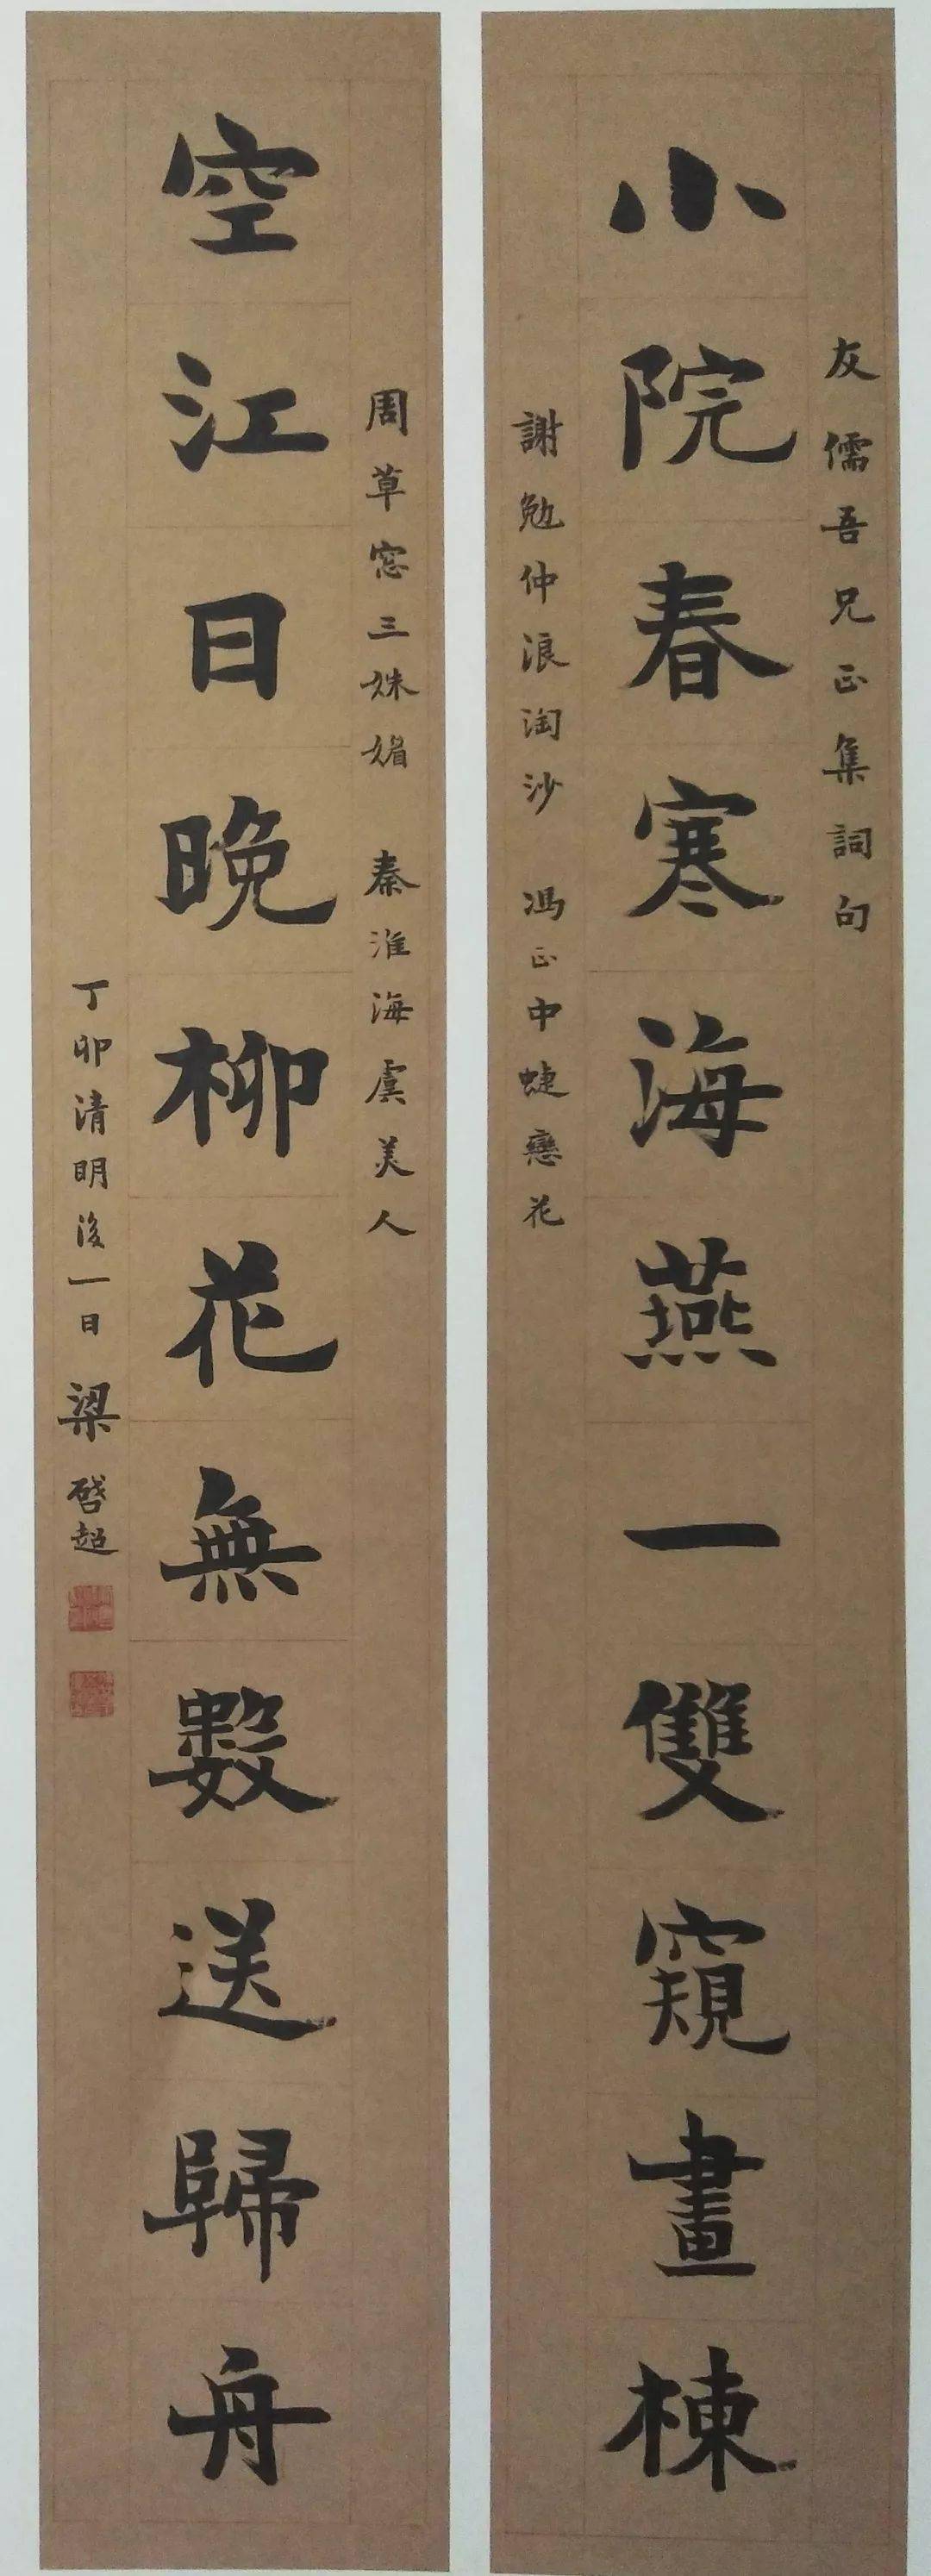 友儒吾兄正集詞句
小院春寒海燕一雙窺畫棟
謝勉仲浪淘沙 馮正中蝶戀花
周草窓三姝媚 秦淮海虞美人
空江日晚柳花無數送歸舟
丁卯清明後一日 梁啓超